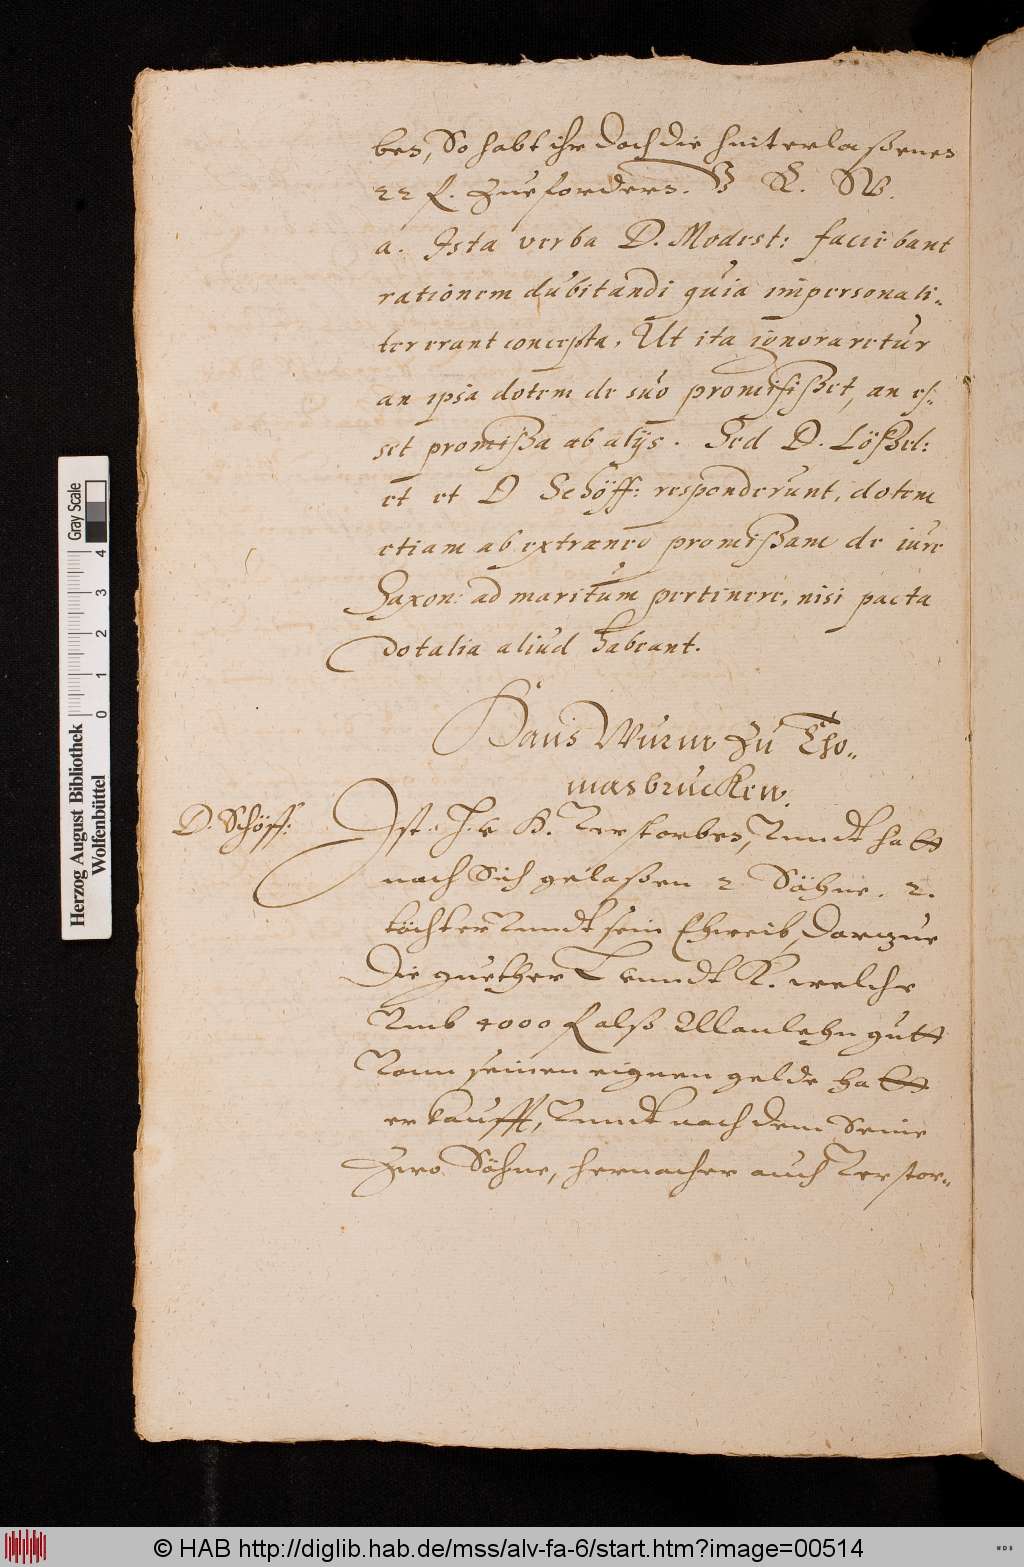 ben, So habt ihr doch die hinterlaßenen
22 f. zue fordern. V R. W.
a. Ista verba D. Modest: faciebant
rationem dubitandi quia impersonali-
ter erant concepta. Ut ita ignoraretur
an ipsa dotem de suo promisißet, an es-
set promißa ab alijs. Sed D. Lößel:
et et D Schöff: responderunt, dotem
etiam ab extraneo promißam de iure
Saxon: ad maritum pertinere, nisi pacta
dotalia aliud habeant.
Hans Wurm zu Tho-
masbrucken.
D. Schöff:
Ist. H. Verstorben, Vnndt hatt
nach Sich gelaßen 2 Söhne. 2.
töchter Vnndt sein Eheweib, darzue
Die guether L vnndt K. welche
Vmb 4000 f alß Manlehn gutt
Vonn seinen eignen gelde hatt
erkaufft, Vnndt nach dem Seine
Zwo Söhne, hernacher auch Verstor-
Herzog August Bibliothek
Wolfenbüttel
Gray Scale
0 1 2 3 4
© HAB http://diglib.hab.de/mss/alv-fa-6/start.htm?image=00514